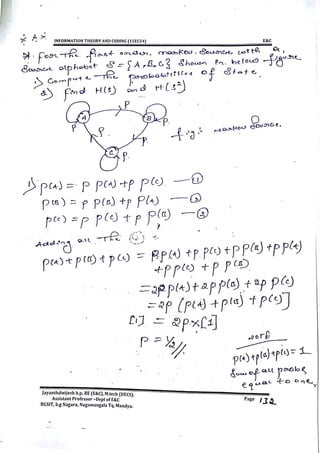 INFORMATION THEORY AND CODING (15EC54) E&C
* for The first order markov source with a,
Source alphabet S = {A, B, C} Shown in below figure
1) Compute The probabilities of State.
2) find H(s) and H(s²)
P
A B
P P P
C P.
fig: markov Source.
1) P(A) = P P(A) + P P(C) —①
P(B) = P P(B) + P P(A) —②
P(C) = P P(C) + P P(B) —③
Adding all The
P(A) + P(B) + P(C) = P P(A) + P P(C) + P P(B) + P P(A)
+ P P(C) + P P(B)
= 2P P(A) + 2P P(B) + 2P P(C)
= 2P [P(A) + P(B) + P(C)]
[1] = 2P × [1]
P = 1/2 //
NOTE
P(A) + P(B) + P(C) = 1
Sum of all probs
equal to one,
Jayanthdwijesh H.P, BE (E&C), M.tech (DECS).
Assistant Professor - Dept of E&C
BGSIT, b.g Nagara, Nagamangala Tq, Mandya.
Page 132